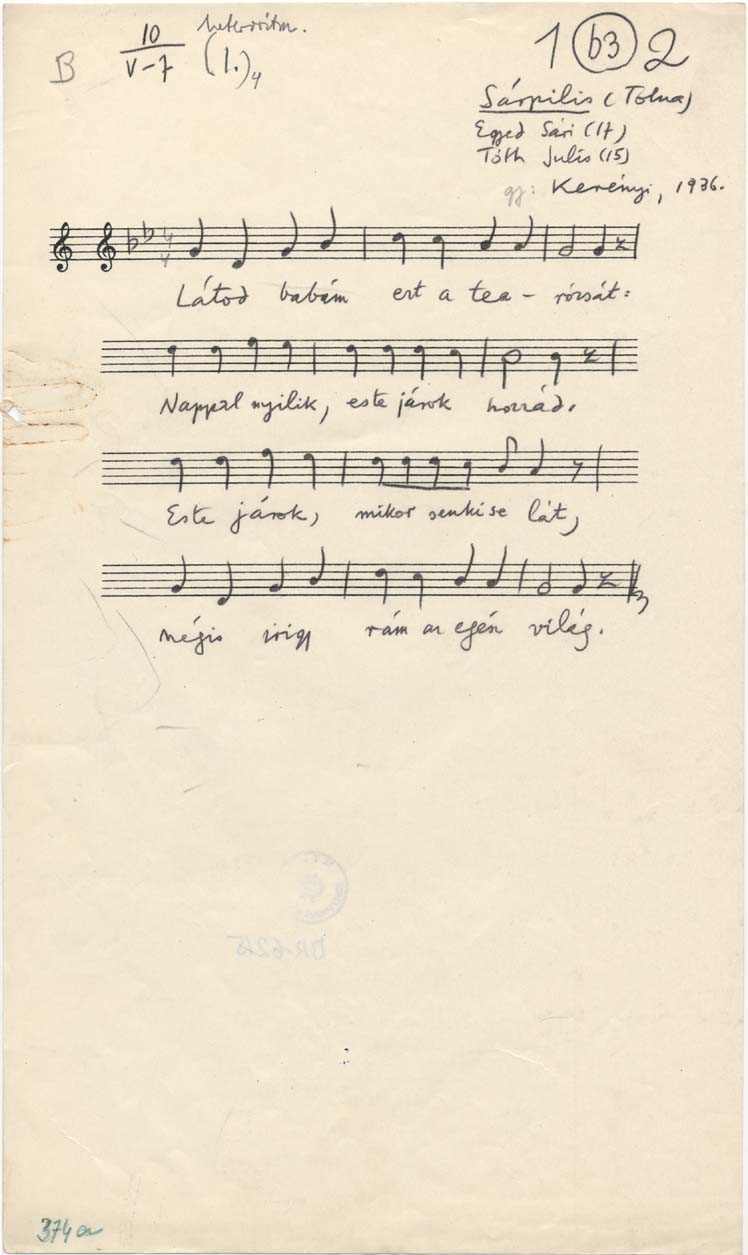 B 10/V-7 (1.)4 heterritm.
1 (b3) 2
Sárpilis (Tolna)
Egyed Sári (17)
Tóth Julis (15)
gy: Kerényi, 1936.
4
4
Látod babám ezt a tea- rózsát:
Nappal nyilik, este járok hozzád.
Este járok, mikor senkise lát,
mégis irigy rám az egén világ.
DR-6215
374a